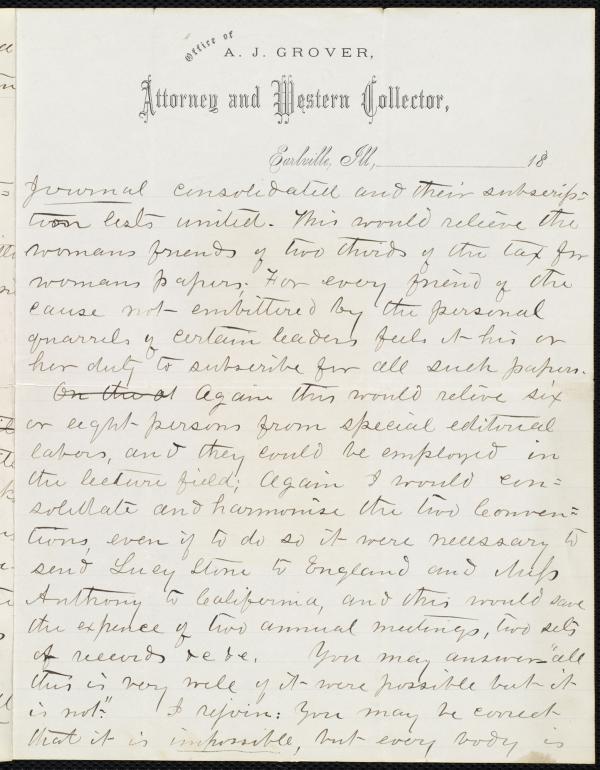 Office of
A. J. GROVER,
Attorney and Western Collector,
Earlville, Ill, 18
Journal consolidated and their subscrip=
tion lists united. This would relieve the
womans friends of two thirds of the tax for
womans papers. For every friend of the
cause not embittered by the personal
quarrels of certain leaders feels it his or
her duty to subscribe for all such papers.
On the ot Again this would relive six
or eight persons from special editorial
labors, and they could be employed in
the lecture field; Again I would con=
solidate and harmonise the two Conven=
tions, even if to do so it were necessary to
send Lucy Stone to England and Miss
Anthony to California, and this would save
the expence of two annual meetings, two sets
of records &c &c. You may answer "all
this is very well if it were possible but it
is not." I rejoin: You may be correct
that it is impossible, but every body is